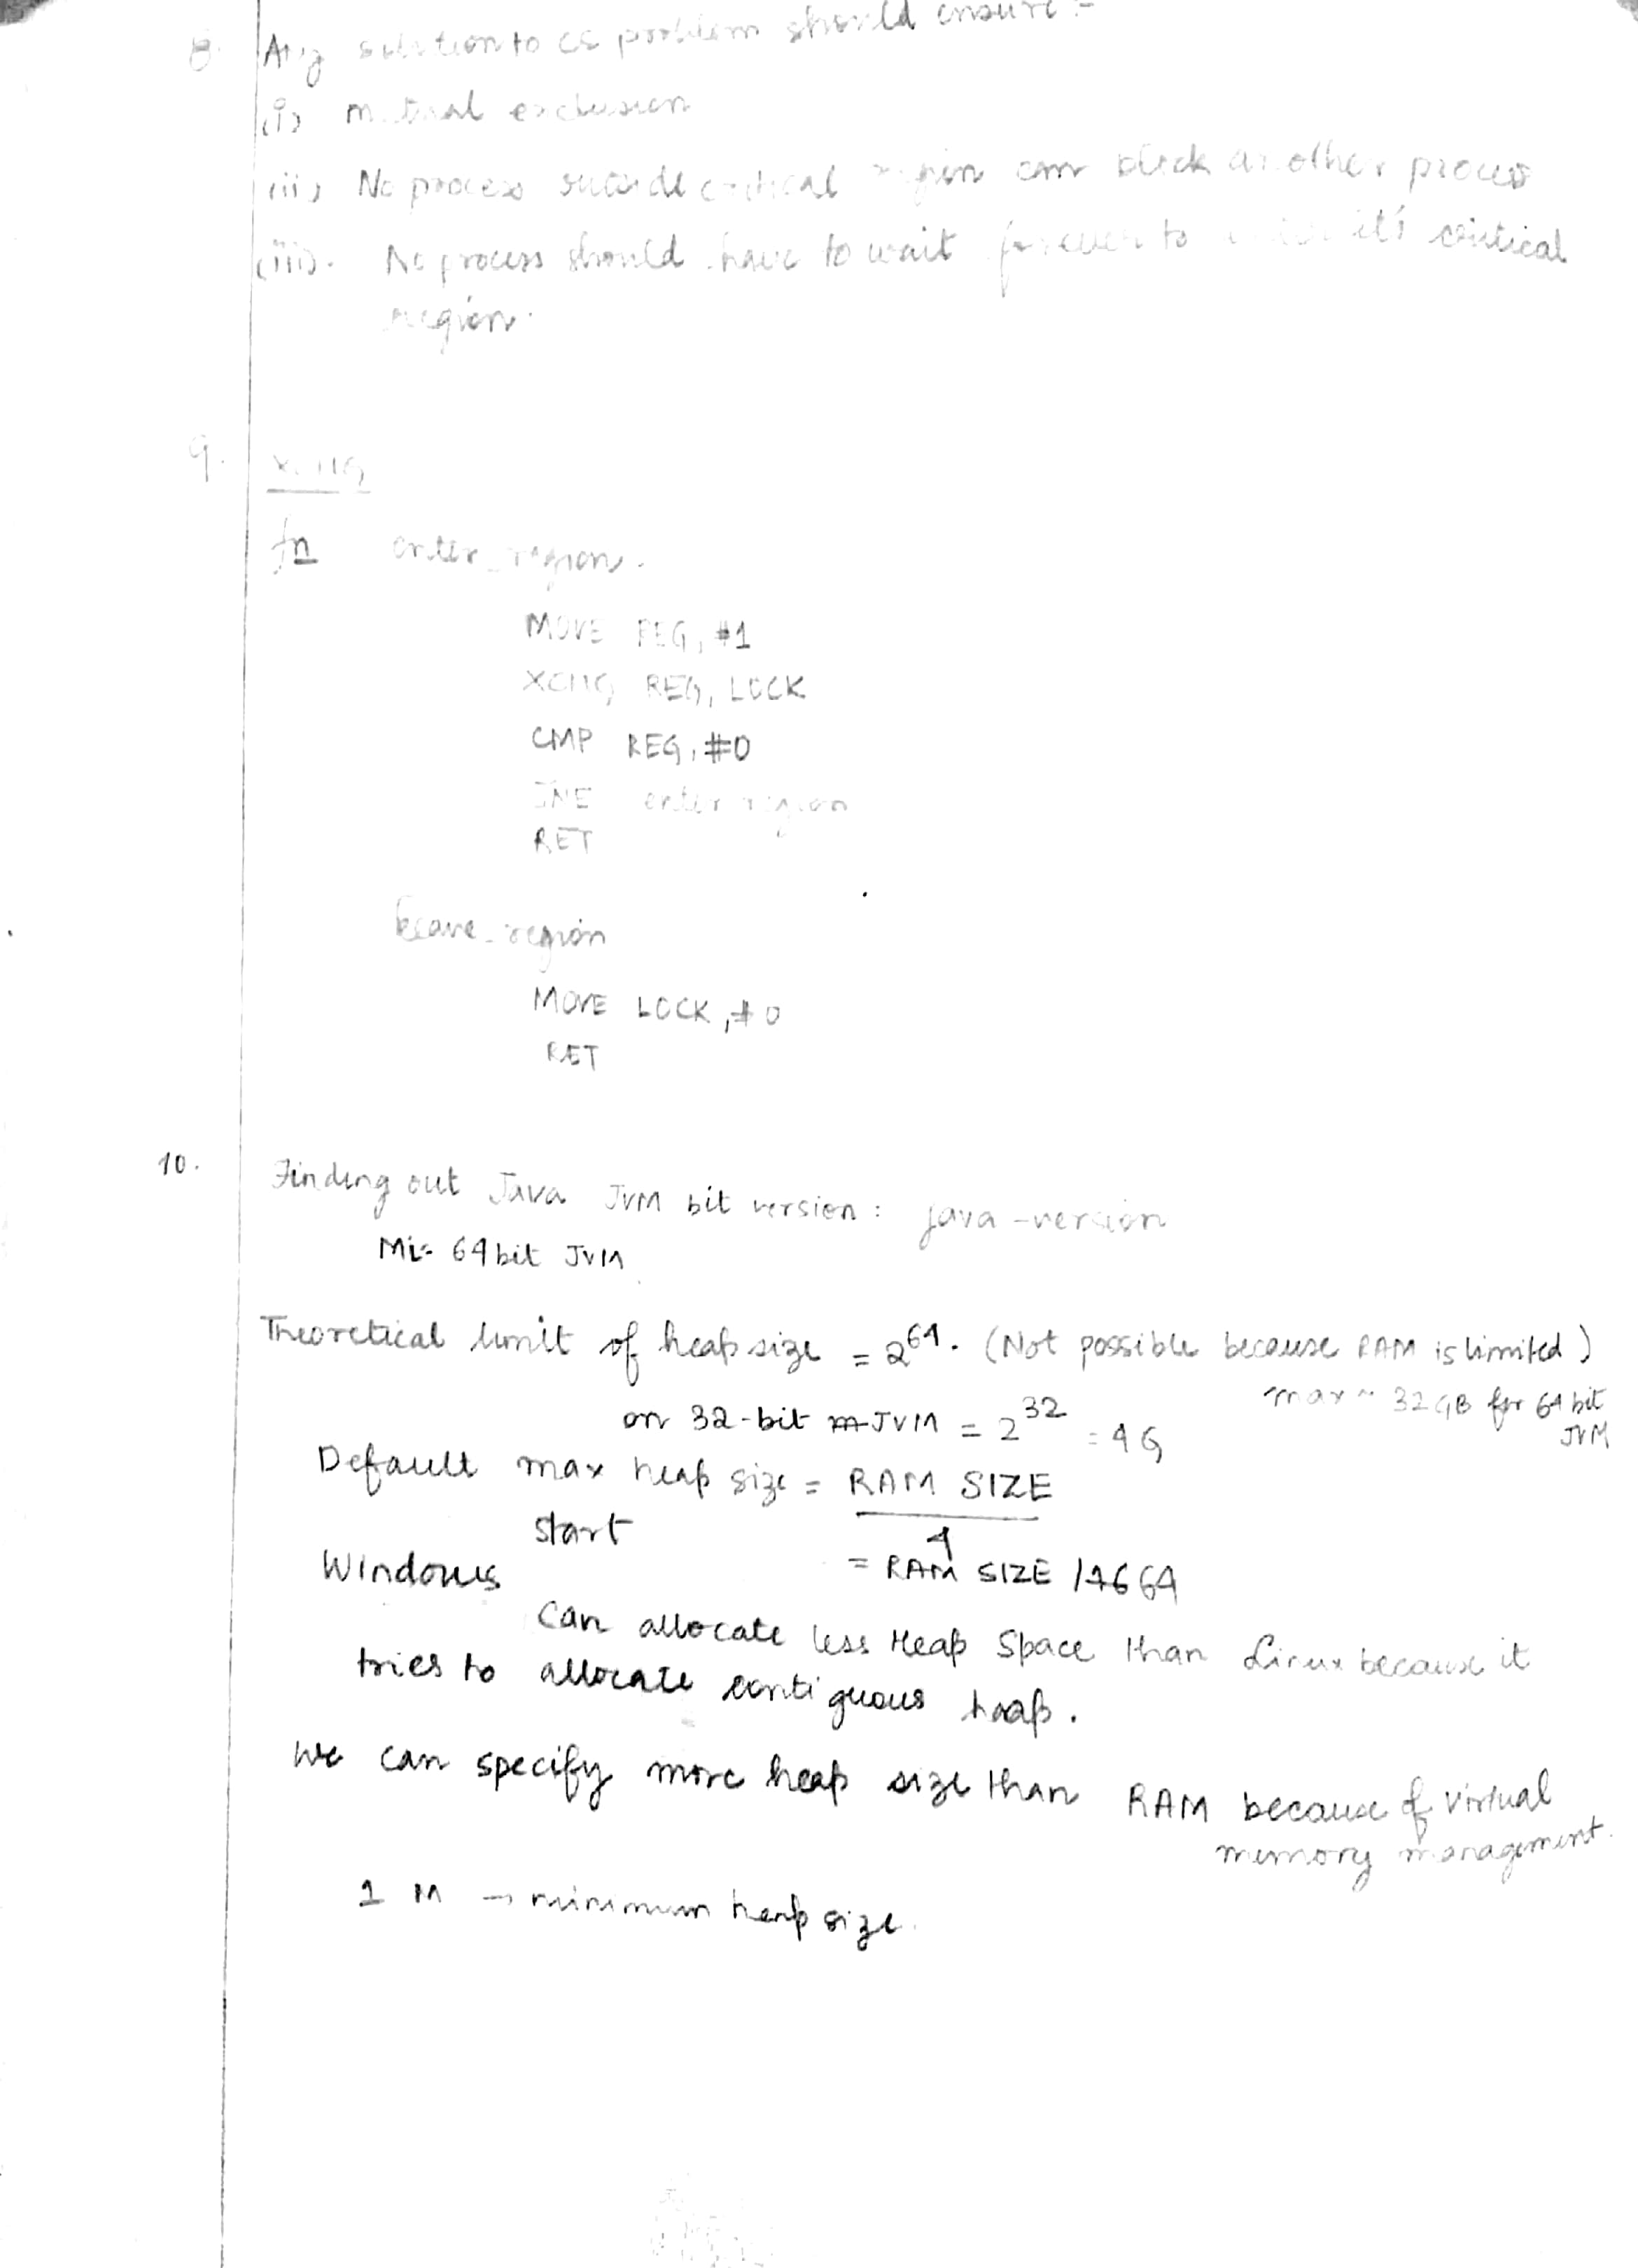 8. Any solution to cs problem should ensure :-
(i) mutual exclusion
(ii) No process outside critical region can block another process
(iii). No process should have to wait forever to it's critical
region.
9. XCHG
fn enter_region.
MOVE REG, #1
XCHG REG, LOCK
CMP REG, #0
JNE enter region
RET
leave_region
MOVE LOCK, #0
RET
10. Finding out Java JVM bit version : java -version
64 bit JVM
Theoretical limit of heap size = 2^64. (Not possible because RAM is limited)
max ~ 32 GB for 64 bit
JVM
on 32-bit JVM = 2^32 = 4G
Default max heap size = RAM SIZE
4
start = RAM SIZE / 64
Windows
Can allocate less Heap Space than Linux because it
tries to allocate contiguous heap.
We can specify more heap size than RAM because of virtual
memory management.
1 M → minimum heap size.